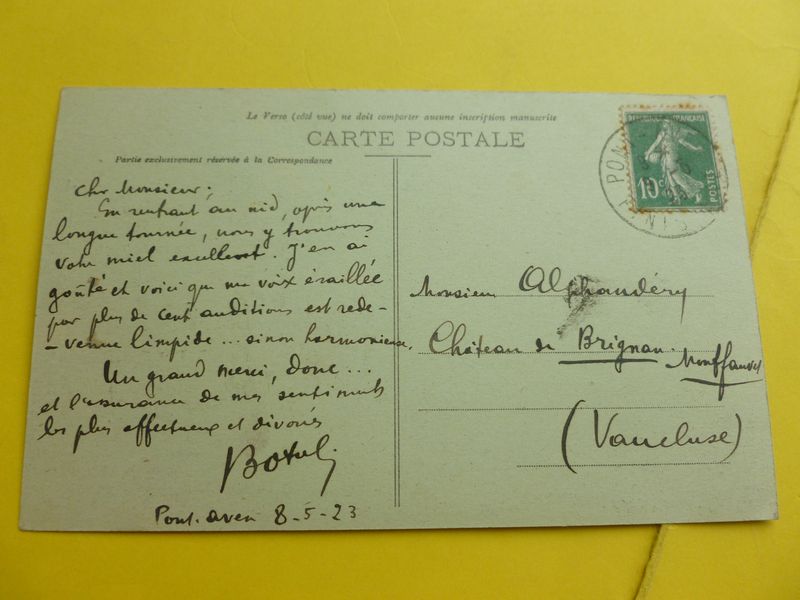 Le Verso (côté vue) ne doit comporter aucune inscription manuscrite
CARTE POSTALE
Partie exclusivement réservée à la Correspondance
Cher Monsieur,
En rentrant au nid, après une
longue tournée, nous y trouvons
votre miel excellent. J'en ai
goûté et voici que ma voix éraillée
par plus de cent auditions est rede-
-venue limpide... sinon harmonieuse.
Un grand merci, donc...
et l'assurance de mes sentiments
les plus affectueux et dévoués
Pont-aven 8-5-23
REPUBLIQUE FRANÇAISE
10c
POSTES
PON
FINIST
Monsieur Alphandéry
Château de Brignan
Montfavet
(Vaucluse)